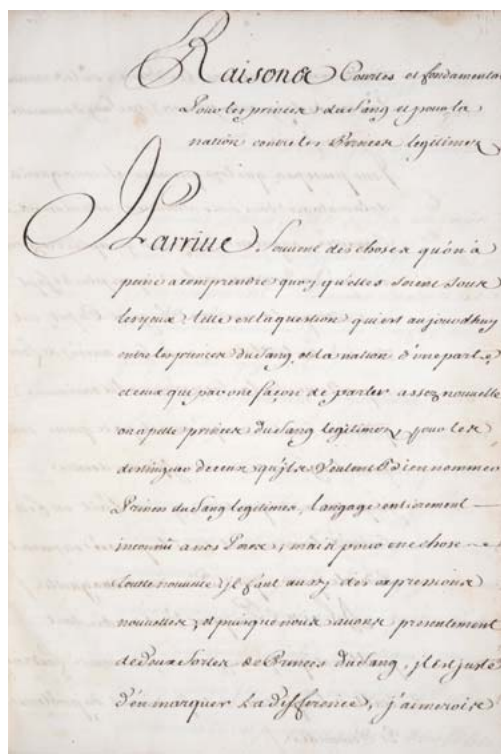 Raisons Courtes et fondamentales
Pour les princes du Sang et pour la
nation contre les Princes legitimes
Il arrive Souvent des choses qu'on à
peine a comprendre quoy qu'elles soient sous
les yeux telle est la question qui est aujourdhuy
entre les princes du Sang et la nation d'une part
et ceux que par une façon de parler assez nouvelle
on apelle princes du Sang legitimes, pour les
distinguer de ceux qu'ils veulent bien nommer
Princes du Sang legitimes, langage entierement
inconnu a nos Peres, mais pour une chose
toutte nouvelle il faut aussy des expressions
nouvelles, et puisque nous avons presentement
de deux sortes de Princes du Sang, il est juste
d'en marquer la difference, j'aimerois